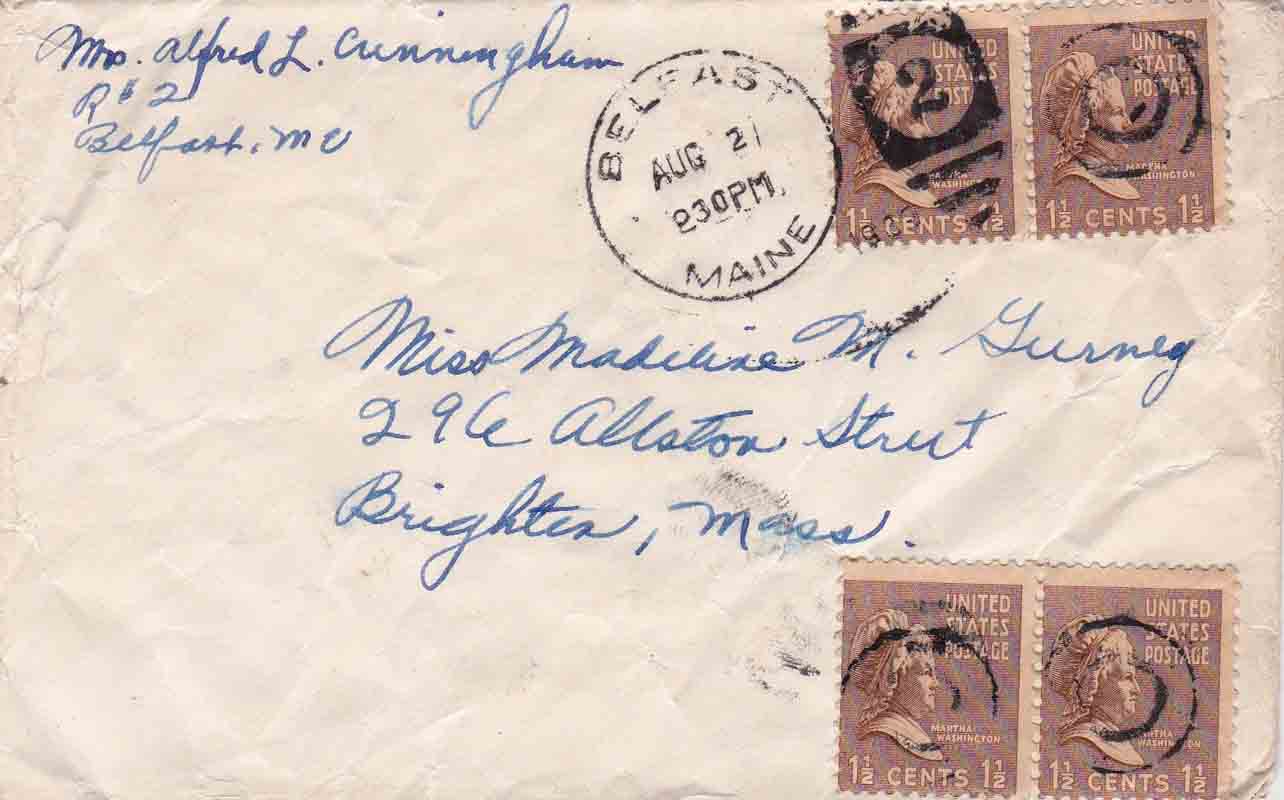 Mrs. Alfred L. Cunningham
R# 2
Belfast, Me
BELFAST
AUG 21
230PM
MAINE
2
UNITED
STATES
POSTAGE
MARTHA
WASHINGTON
1½ CENTS 1½
UNITED
STATES
POSTAGE
MARTHA
WASHINGTON
1½ CENTS 1½
Miss Madeline M. Gurney
296 Allston Street
Brighton, Mass.
UNITED
STATES
POSTAGE
MARTHA
WASHINGTON
1½ CENTS 1½
UNITED
STATES
POSTAGE
MARTHA
WASHINGTON
1½ CENTS 1½